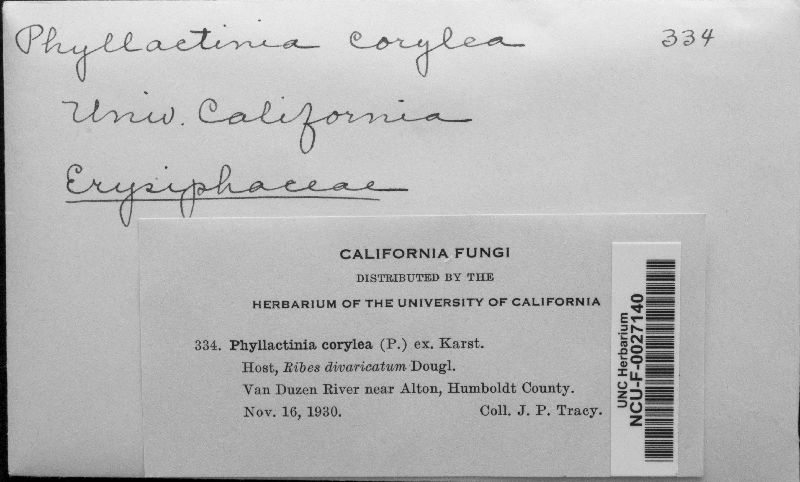 Phyllactinia corylea 334
Univ. California
Erysiphaceae
CALIFORNIA FUNGI
DISTRIBUTED BY THE
HERBARIUM OF THE UNIVERSITY OF CALIFORNIA
334. Phyllactinia corylea (P.) ex. Karst.
Host, Ribes divaricatum Dougl.
Van Duzen River near Alton, Humboldt County.
Nov. 16, 1930. Coll. J. P. Tracy.
UNC Herbarium
NCU-F-0027140